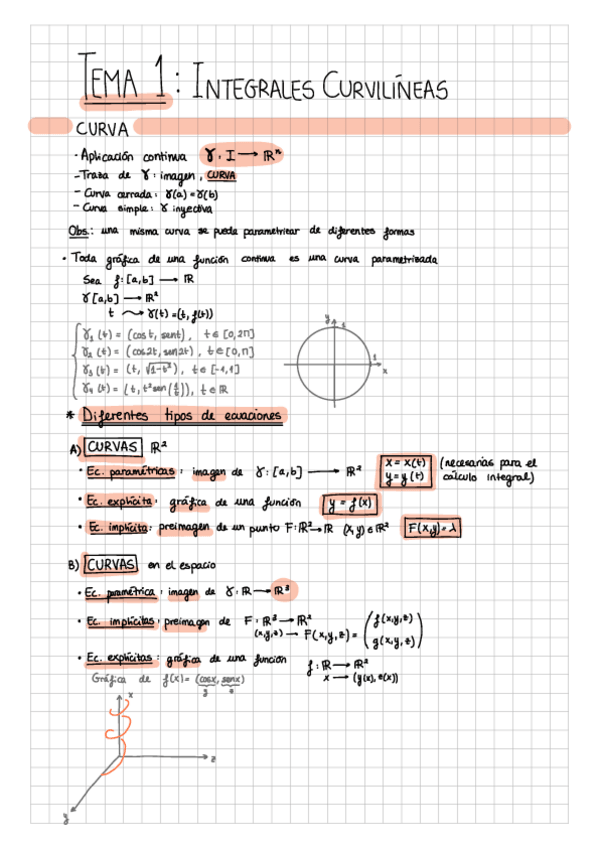 TEMA 1: INTEGRALES CURVILÍNEAS
CURVA
· Aplicación continua γ: I → ℝⁿ
- Traza de γ: imagen, CURVA
- Curva cerrada: γ(a) = γ(b)
- Curva simple: γ inyectiva
Obs.: una misma curva se puede parametrizar de diferentes formas
· Toda gráfica de una función continua es una curva parametrizada
Sea f: [a,b] → ℝ
γ[a,b] → ℝ²
t ⤳ γ(t) = (t, f(t))
γ₁(t) = (cos t, sen t), t ∈ [0, 2π]
γ₂(t) = (cos 2t, sen 2t), t ∈ [0, π]
γ₃(t) = (t, √(1-t²)), t ∈ [-1, 1]
γ₄(t) = (t, t² sen(1/t)), t ∈ ℝ
y
1
1
x
* Diferentes tipos de ecuaciones
A) CURVAS ℝ²
· Ec. paramétricas: imagen de γ: [a,b] → ℝ² x = x(t) y = y(t) (necesarias para el cálculo integral)
· Ec. explícita: gráfica de una función y = f(x)
· Ec. implícita: preimagen de un punto F: ℝ² → ℝ (x,y) ∈ ℝ² F(x,y) = λ
B) CURVAS en el espacio
· Ec. paramétrica: imagen de γ: ℝ → ℝ³
· Ec. implícitas: preimagen de F: ℝ³ → ℝ²
(x,y,z) → F(x,y,z) = (f(x,y,z) g(x,y,z))
· Ec. explícitas: gráfica de una función f: ℝ → ℝ²
x → (y(x), z(x))
Gráfica de f(x) = (cos x, sen x)
y z
x
z
y